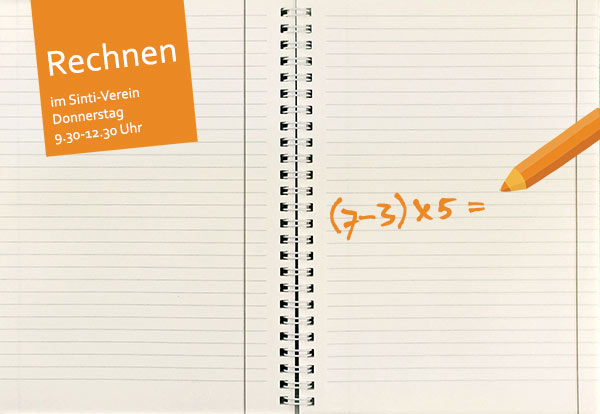 Rechnen
im Sinti-Verein
Donnerstag
9.30-12.30 Uhr
(7-3) x 5 =